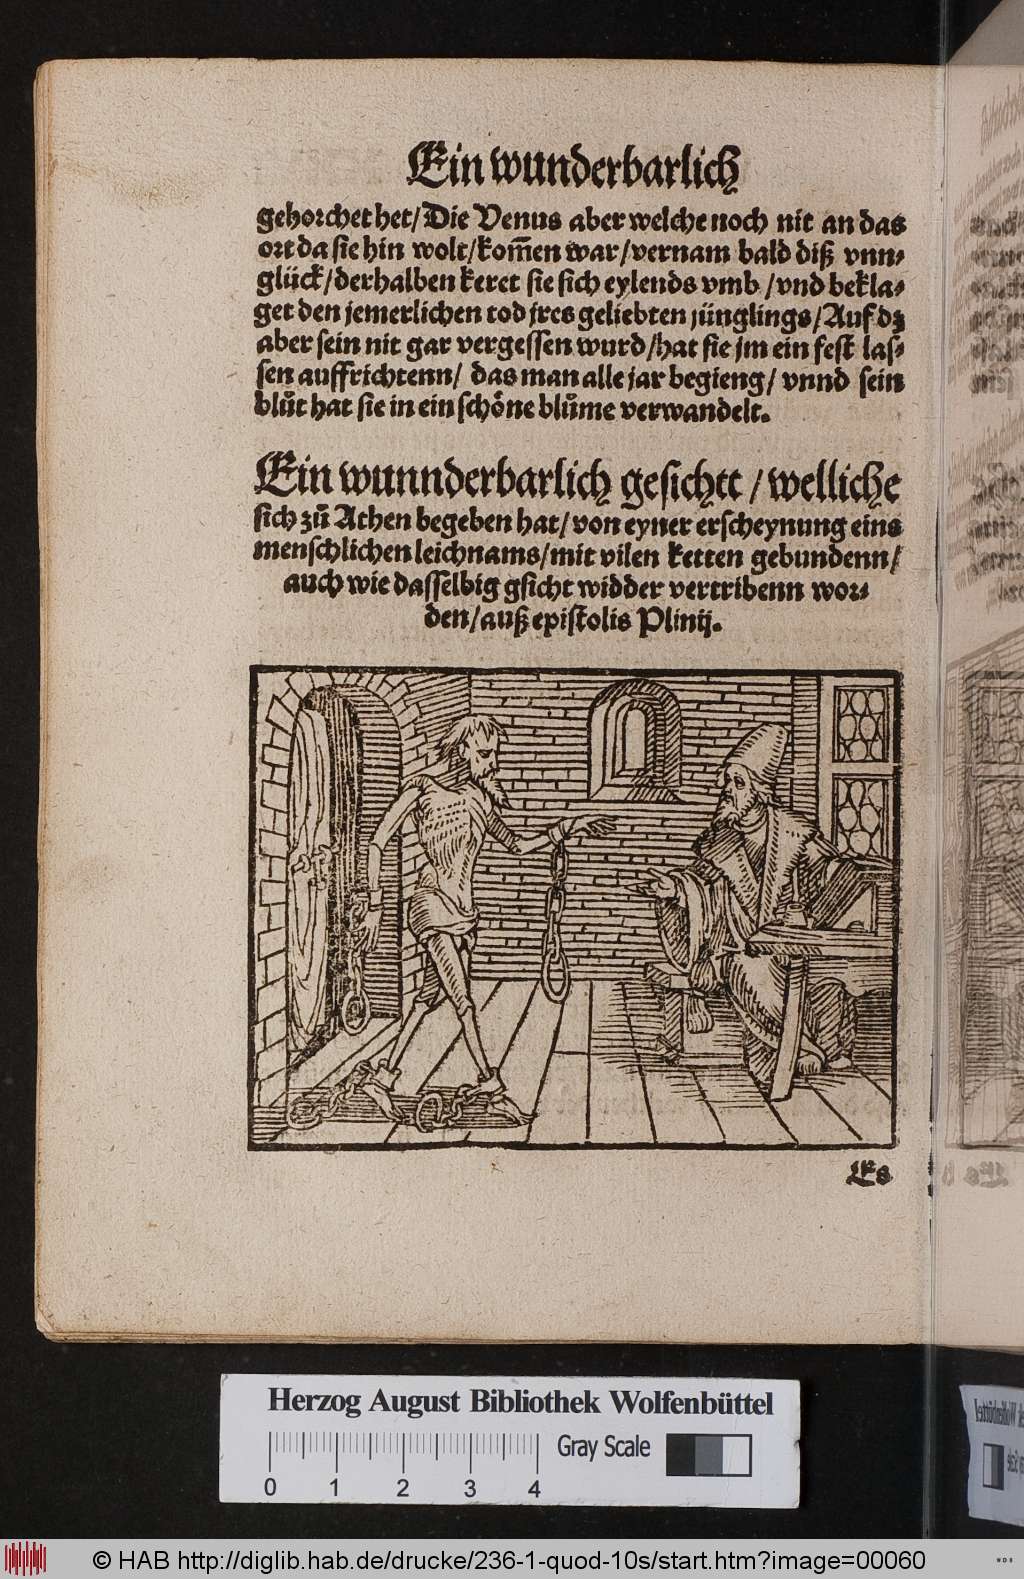 Ein wunderbarlich
gehorchet het/Die Venus aber welche noch nit an das
ort da sie hin wolt/kom̅en war/vernam bald diß vnn⸗
glück/derhalben keret sie sich eylends vmb/vnd bekla⸗
get den jemerlichen tod jres geliebten jünglings/Auf dz
aber sein nit gar vergessen wurd/hat sie jm ein fest las⸗
sen auffrichtenn/ das man alle jar begieng/ vnnd sein
blůt hat sie in ein schöne blůme verwandelt.
Ein wunnderbarlich gesichtt/welliche
sich zů Athen begeben hat/von eyner erscheynung eins
menschlichen leichnams/mit vilen ketten gebundenn/
auch wie dasselbig gsicht widder vertribenn wor⸗
den/auß epistolis Plinij.
Es
Herzog August Bibliothek Wolfenbüttel
Gray Scale
0 1 2 3 4
© HAB http://diglib.hab.de/drucke/236-1-quod-10s/start.htm?image=00060